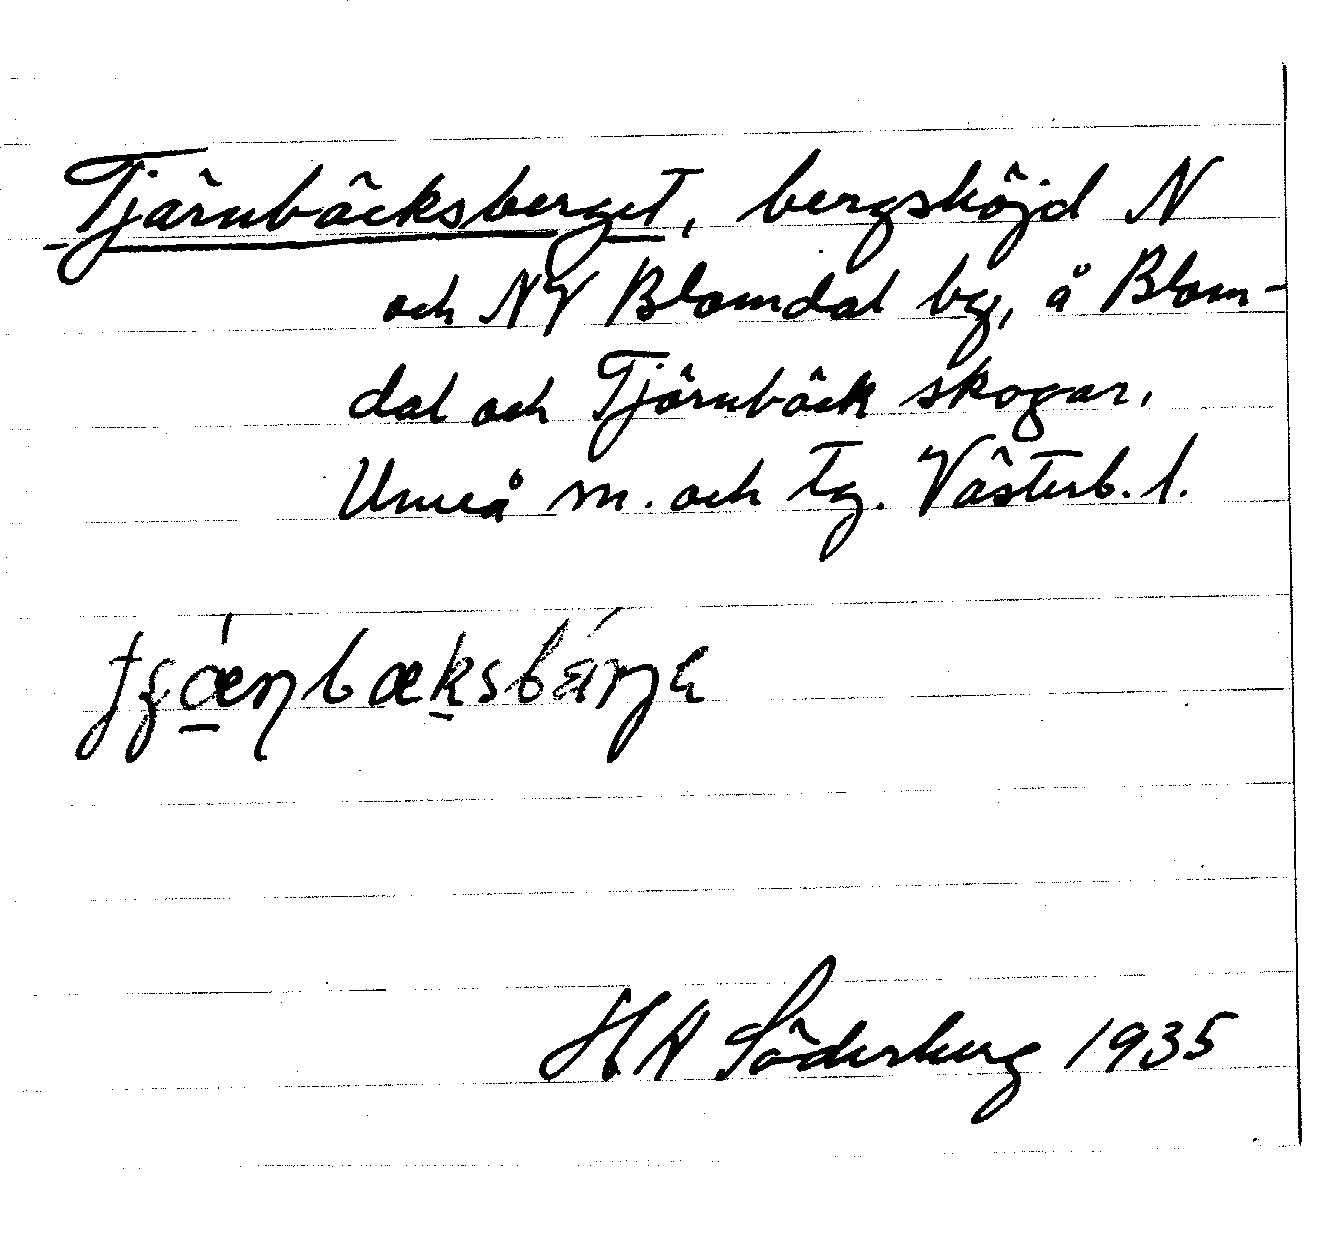 Tjärnbäcksberget, bergshöjd N
och NV Blomdal bg, å Blom-
dal och Tjärnbäck skogar,
Umeå m. och tg. Västerb. l.
H A Söderberg 1935